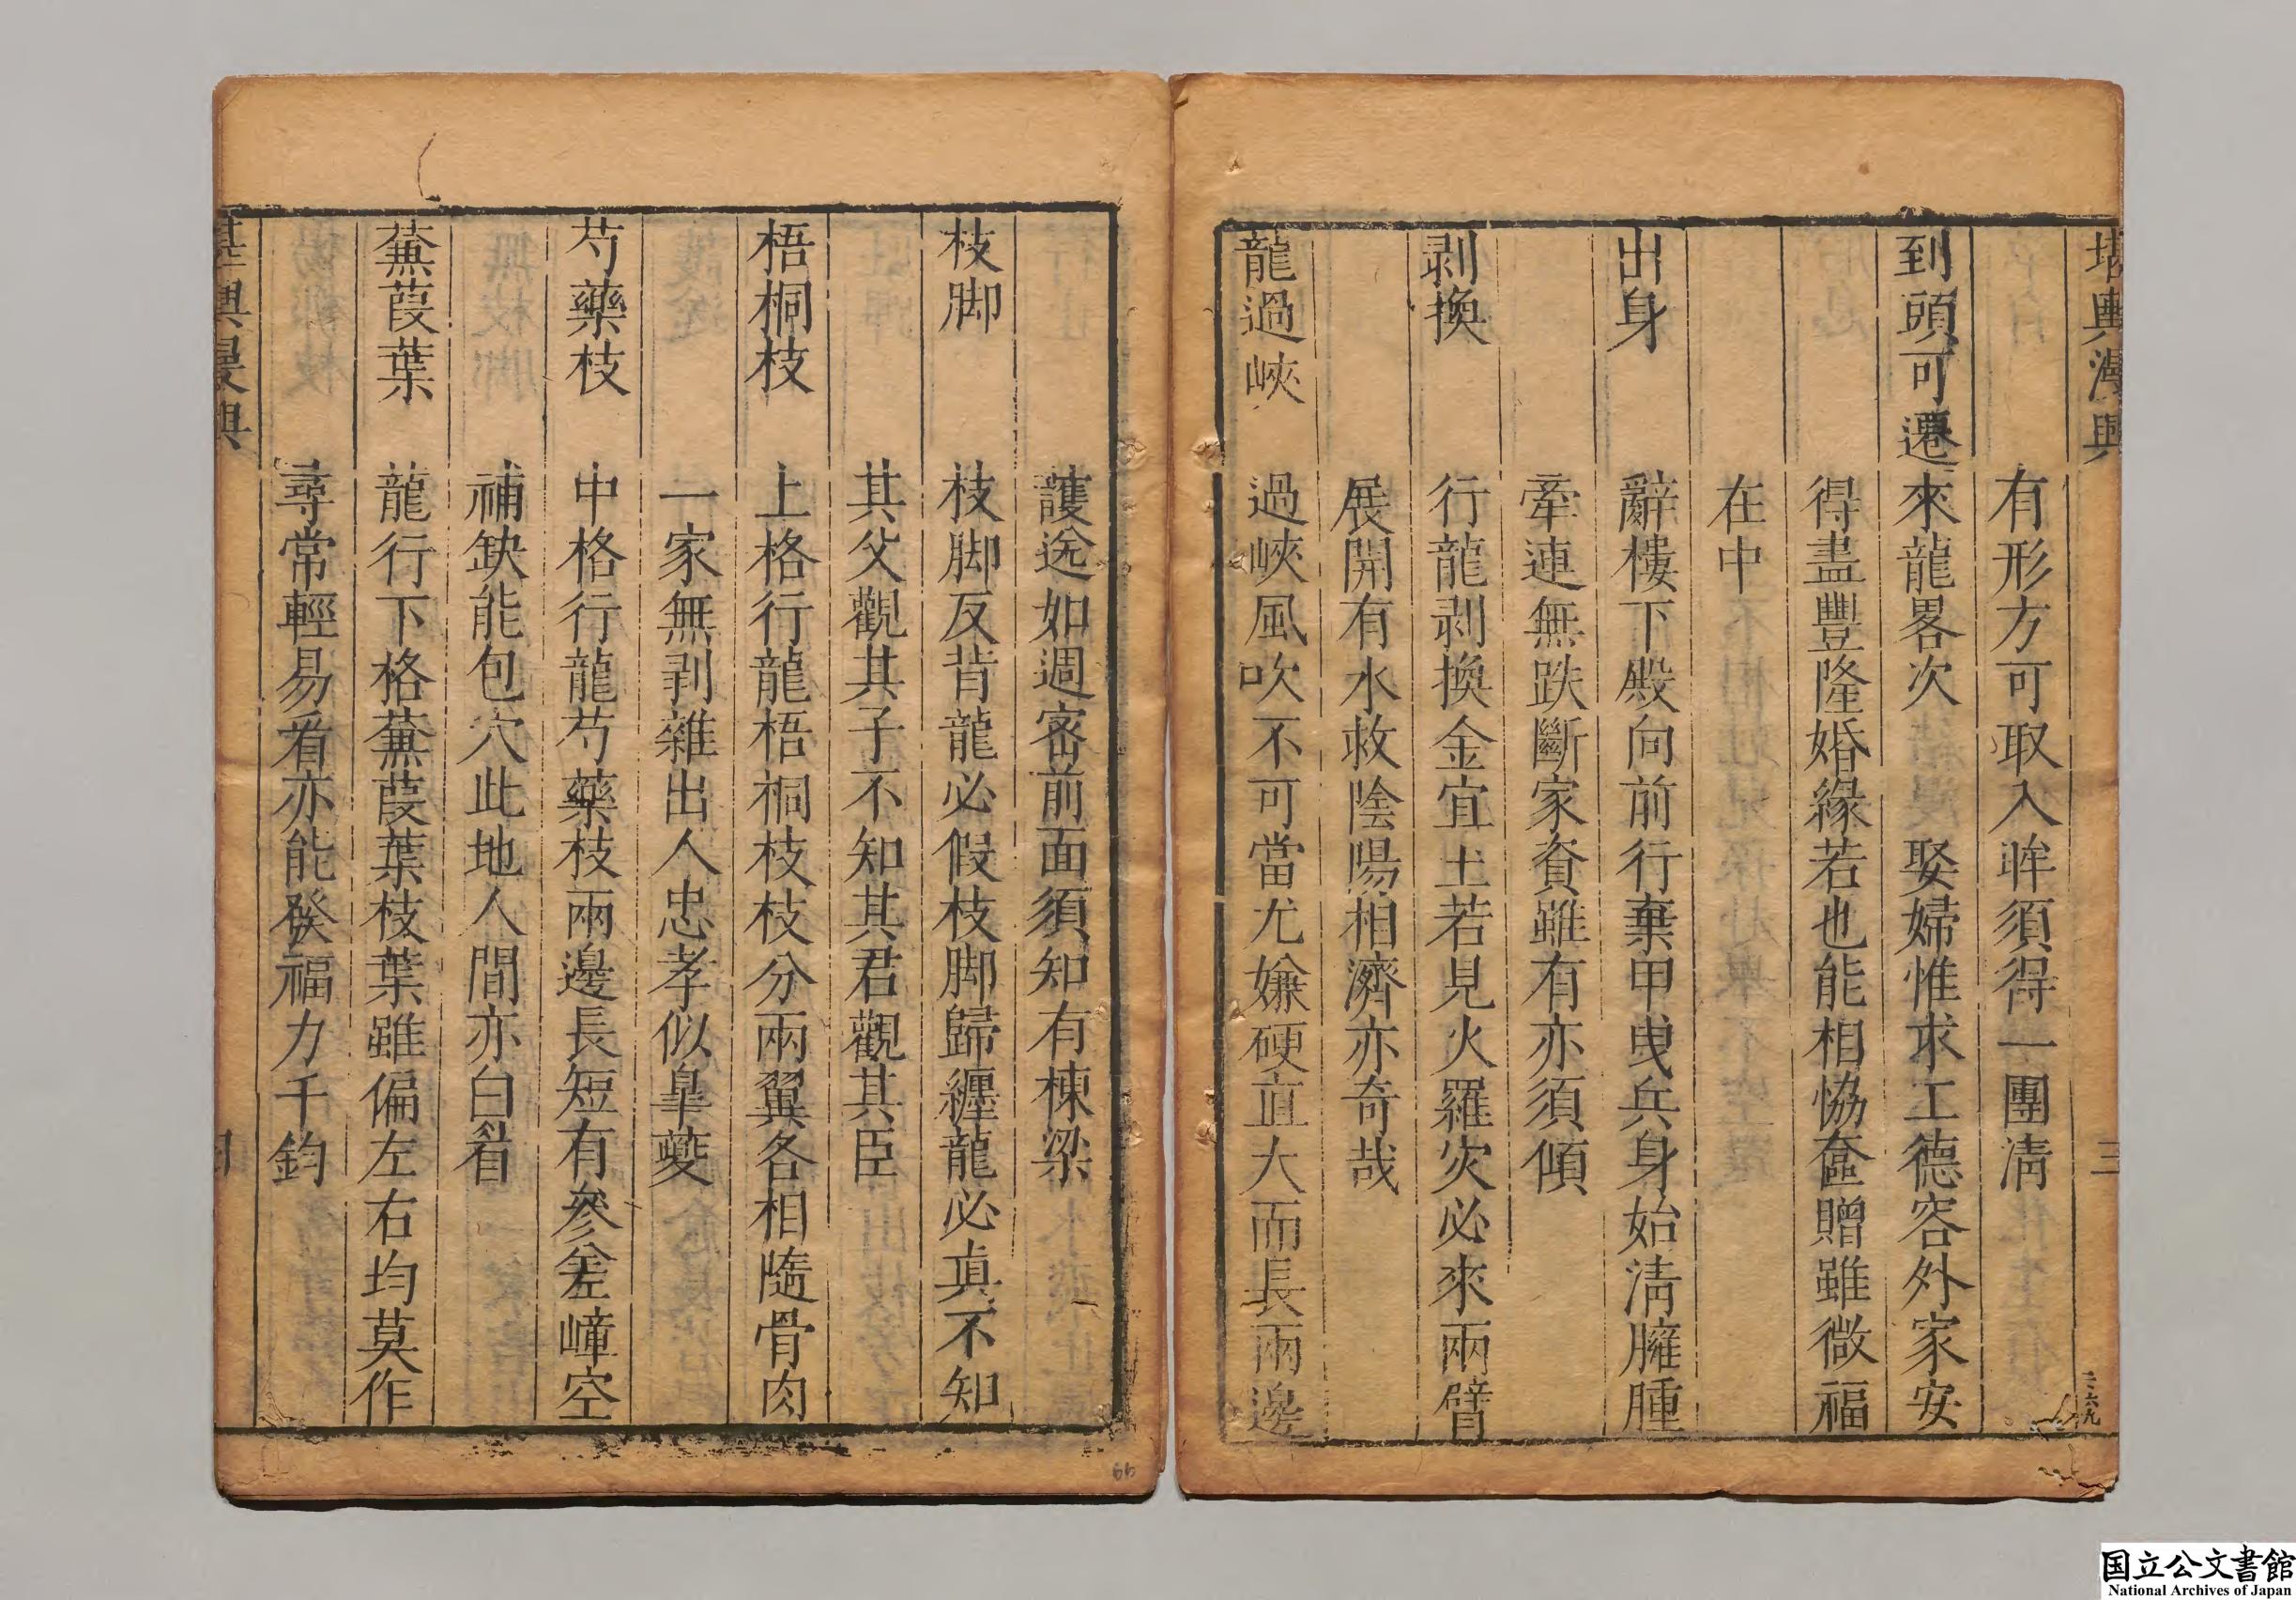 堪輿漫興
三
有形方可取入眸須得一團清
到頭可遷 來龍畧次 娶婦惟求工德容外家安
得盡豐隆婚緣若也能相恊奩贈雖微福
在中
出身 辭樓下殿向前行棄甲曳兵身始清臃腫
牽連無跌斷家資雖有亦須傾
剥換 行龍剥換金宜土若見火羅灾必來兩臂
展開有水救陰陽相濟亦奇哉
龍過峽 過峽風吹不可當尤嫌硬直大而長兩邊
護送如週密前面須知有棟梁
枝脚 枝脚反背龍必假枝脚歸纒龍必真不知
其父觀其子不知其君觀其臣
梧桐枝 上格行龍梧桐枝枝分兩翼各相隨骨肉
一家無剥雜出人忠孝似臯夔
芍藥枝 中格行龍芍藥枝兩邊長短有參差嶂空
補缺能包穴此地人間亦白眉
蒹葭葉 龍行下格蒹葭葉枝葉雖偏左右均莫作
尋常輕易看亦能發福力千鈞
堪輿漫興
国立公文書館
National Archives of Japan